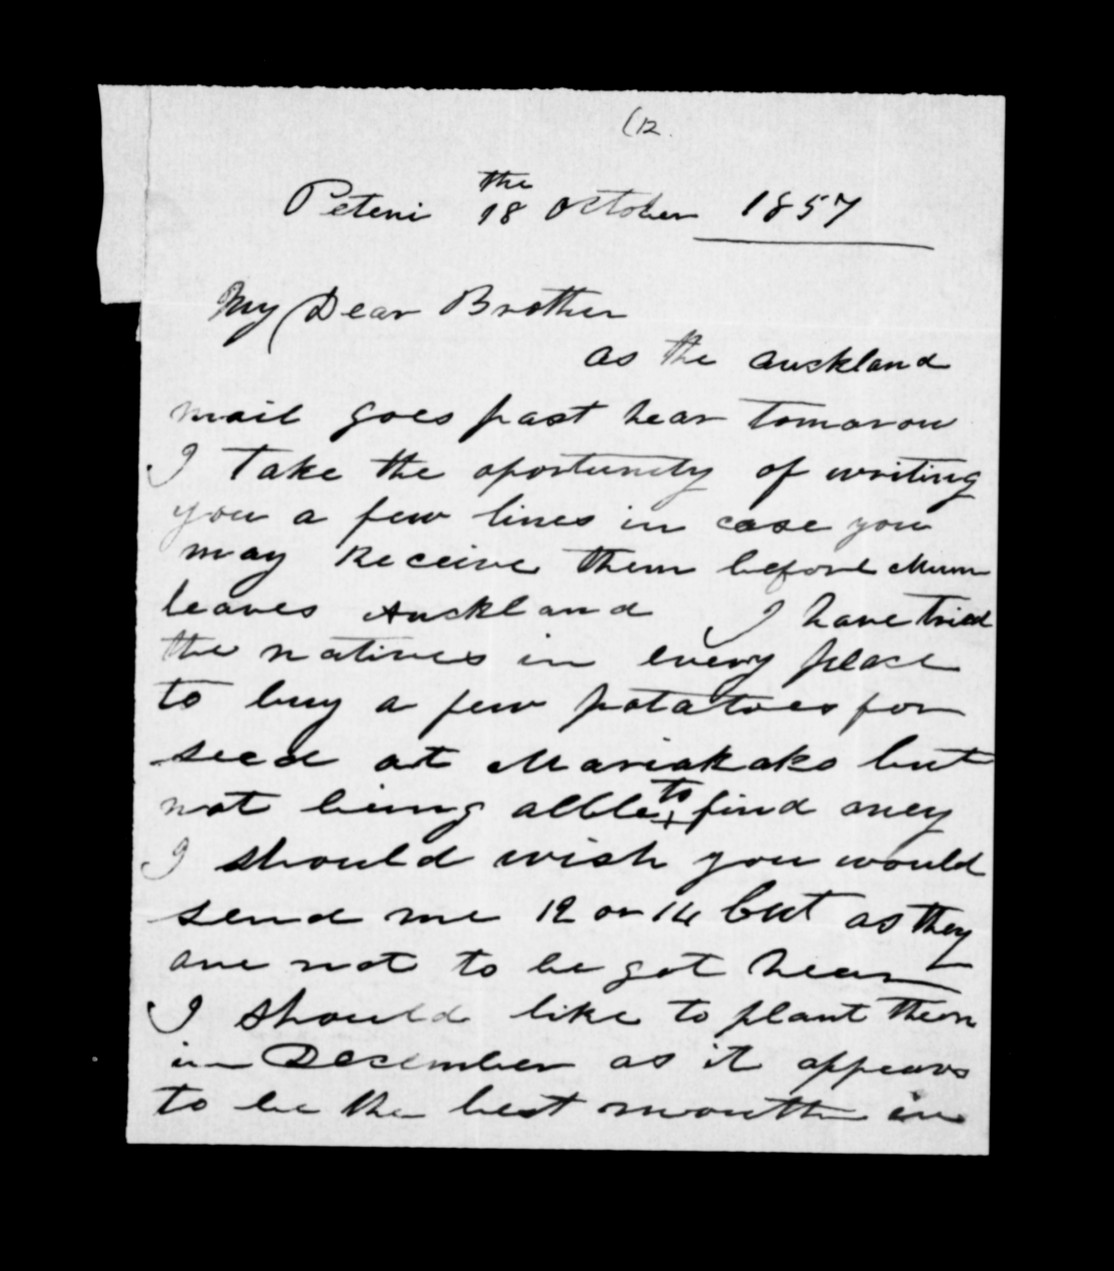 (12.
the
Peteni 18 October 1857
My Dear Brother
as the Auckland
mail goes past hear tomorow
I take the oportunity of writing
you a few lines in case you
may Receive them before Munn
leaves Auckland I have tried
the natives in every place
to buy a few potatoes for
seed at Mariakako but
not being allble to find aney
I should wish you would
send me 12 or 14 but as they
are not to be got hear
I should like to plant them
in December as it appears
to be the best month in